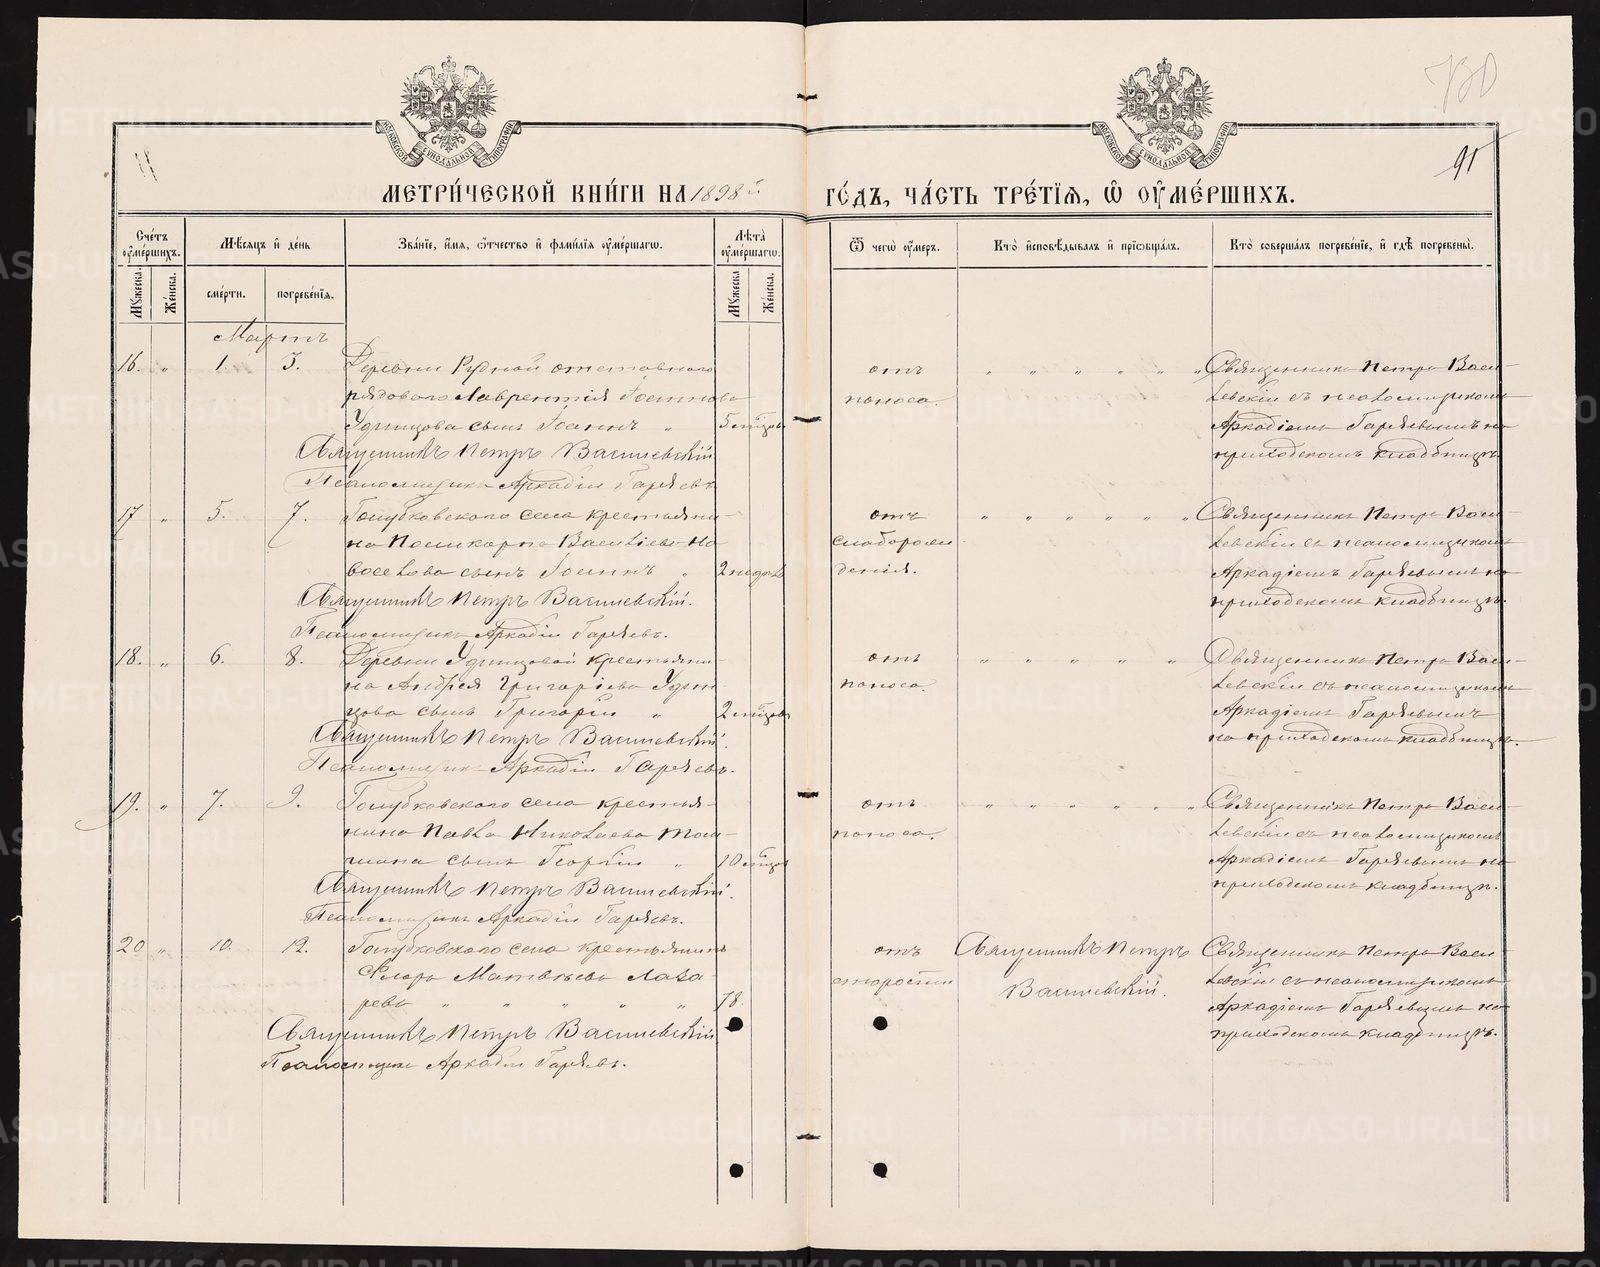 91
МЕТРИ́ЧЕСКОЙ КНИ́ГИ НА 1898й ГО́ДЪ, ЧА́СТЬ ТРЕ́ТІѦ, Ѽ ОУ҆МЕ́РШИХЪ.
Сче́тъ оу҆ме́ршихъ.
Мꙋ́жеска.
Же́нска.
Мѣ́сѧцъ и҆ де́нь
сме́рти.
погребе́нїѧ.
Зва́нїе, и҆́мѧ, ѻ҆́тчество и҆ фами́лїѧ оу҆ме́ршагѡ.
Лѣ́та оу҆ме́ршагѡ.
Мꙋ́жеска
Же́нска.
Ѿ чегѡ̀ оу҆́меръ.
Кто̀ и҆сповѣ́дывалъ и҆ прїѡбща́лъ.
Кто̀ соверша́лъ погребе́нїе, и҆ гдѣ̀ погребены̀.
Мартъ
16. " 1. 3. Деревни Рудной отставного
рядового Лаврентія Іоаннова
Удинцова сынъ Іоаннъ " 5 мѣсяц.
Священникъ Петръ Василевскій
Псаломщикъ Аркадій Гаряевъ
отъ
поноса.
" " " " " "
Священникъ Петръ Васи-
левскій съ псаломщикомъ
Аркадіемъ Гаряевымъ на
приходскомъ кладбищѣ.
17 " 5. 7. Голубковского села крестьяни-
на Поликарпа Васильева Но-
воселова сынъ Іоаннъ " 2 недѣль
Священникъ Петръ Василевскій.
Псаломщикъ Аркадій Гаряевъ.
отъ
слаборож-
денія.
" " " " " "
Священникъ Петръ Васи-
левскій съ псаломщикомъ
Аркадіемъ Гаряевымъ на
приходскомъ кладбищѣ.
18. " 6. 8. Деревни Удинцовой крестьяни-
на Андрея Григоріева Удин-
цова сынъ Григорій " 2 мѣсяц.
Священникъ Петръ Василевскій.
Псаломщикъ Аркадій Гаряевъ.
отъ
поноса.
" " " " "
Священникъ Петръ Васи-
левскій съ псаломщикомъ
Аркадіемъ Гаряевымъ
на приходскомъ кладбищѣ.
19. " 7. 9. Голубковского села крестья-
нина Павла Николаева
сынъ Георгій " 10 мѣсяц.
Священникъ Петръ Василевскій.
Псаломщикъ Аркадій Гаряевъ.
отъ
поноса.
" " " " " "
Священникъ Петръ Васи-
левскій съ псаломщикомъ
Аркадіемъ Гаряевымъ на
приходскомъ кладбищѣ.
20 " 10. 12. Голубковского села крестьянинъ
Флоръ Матвѣевъ Лаза-
ревъ " " " " " 78.
Священникъ Петръ Василевскій
Псаломщикъ Аркадій Гаряевъ.
отъ
старости
Священникъ Петръ
Василевскій.
Священникъ Петръ Васи-
левскій съ псаломщикомъ
Аркадіемъ Гаряевымъ на
приходскомъ кладбищѣ.
METRIKI.GASO-URAL.RU